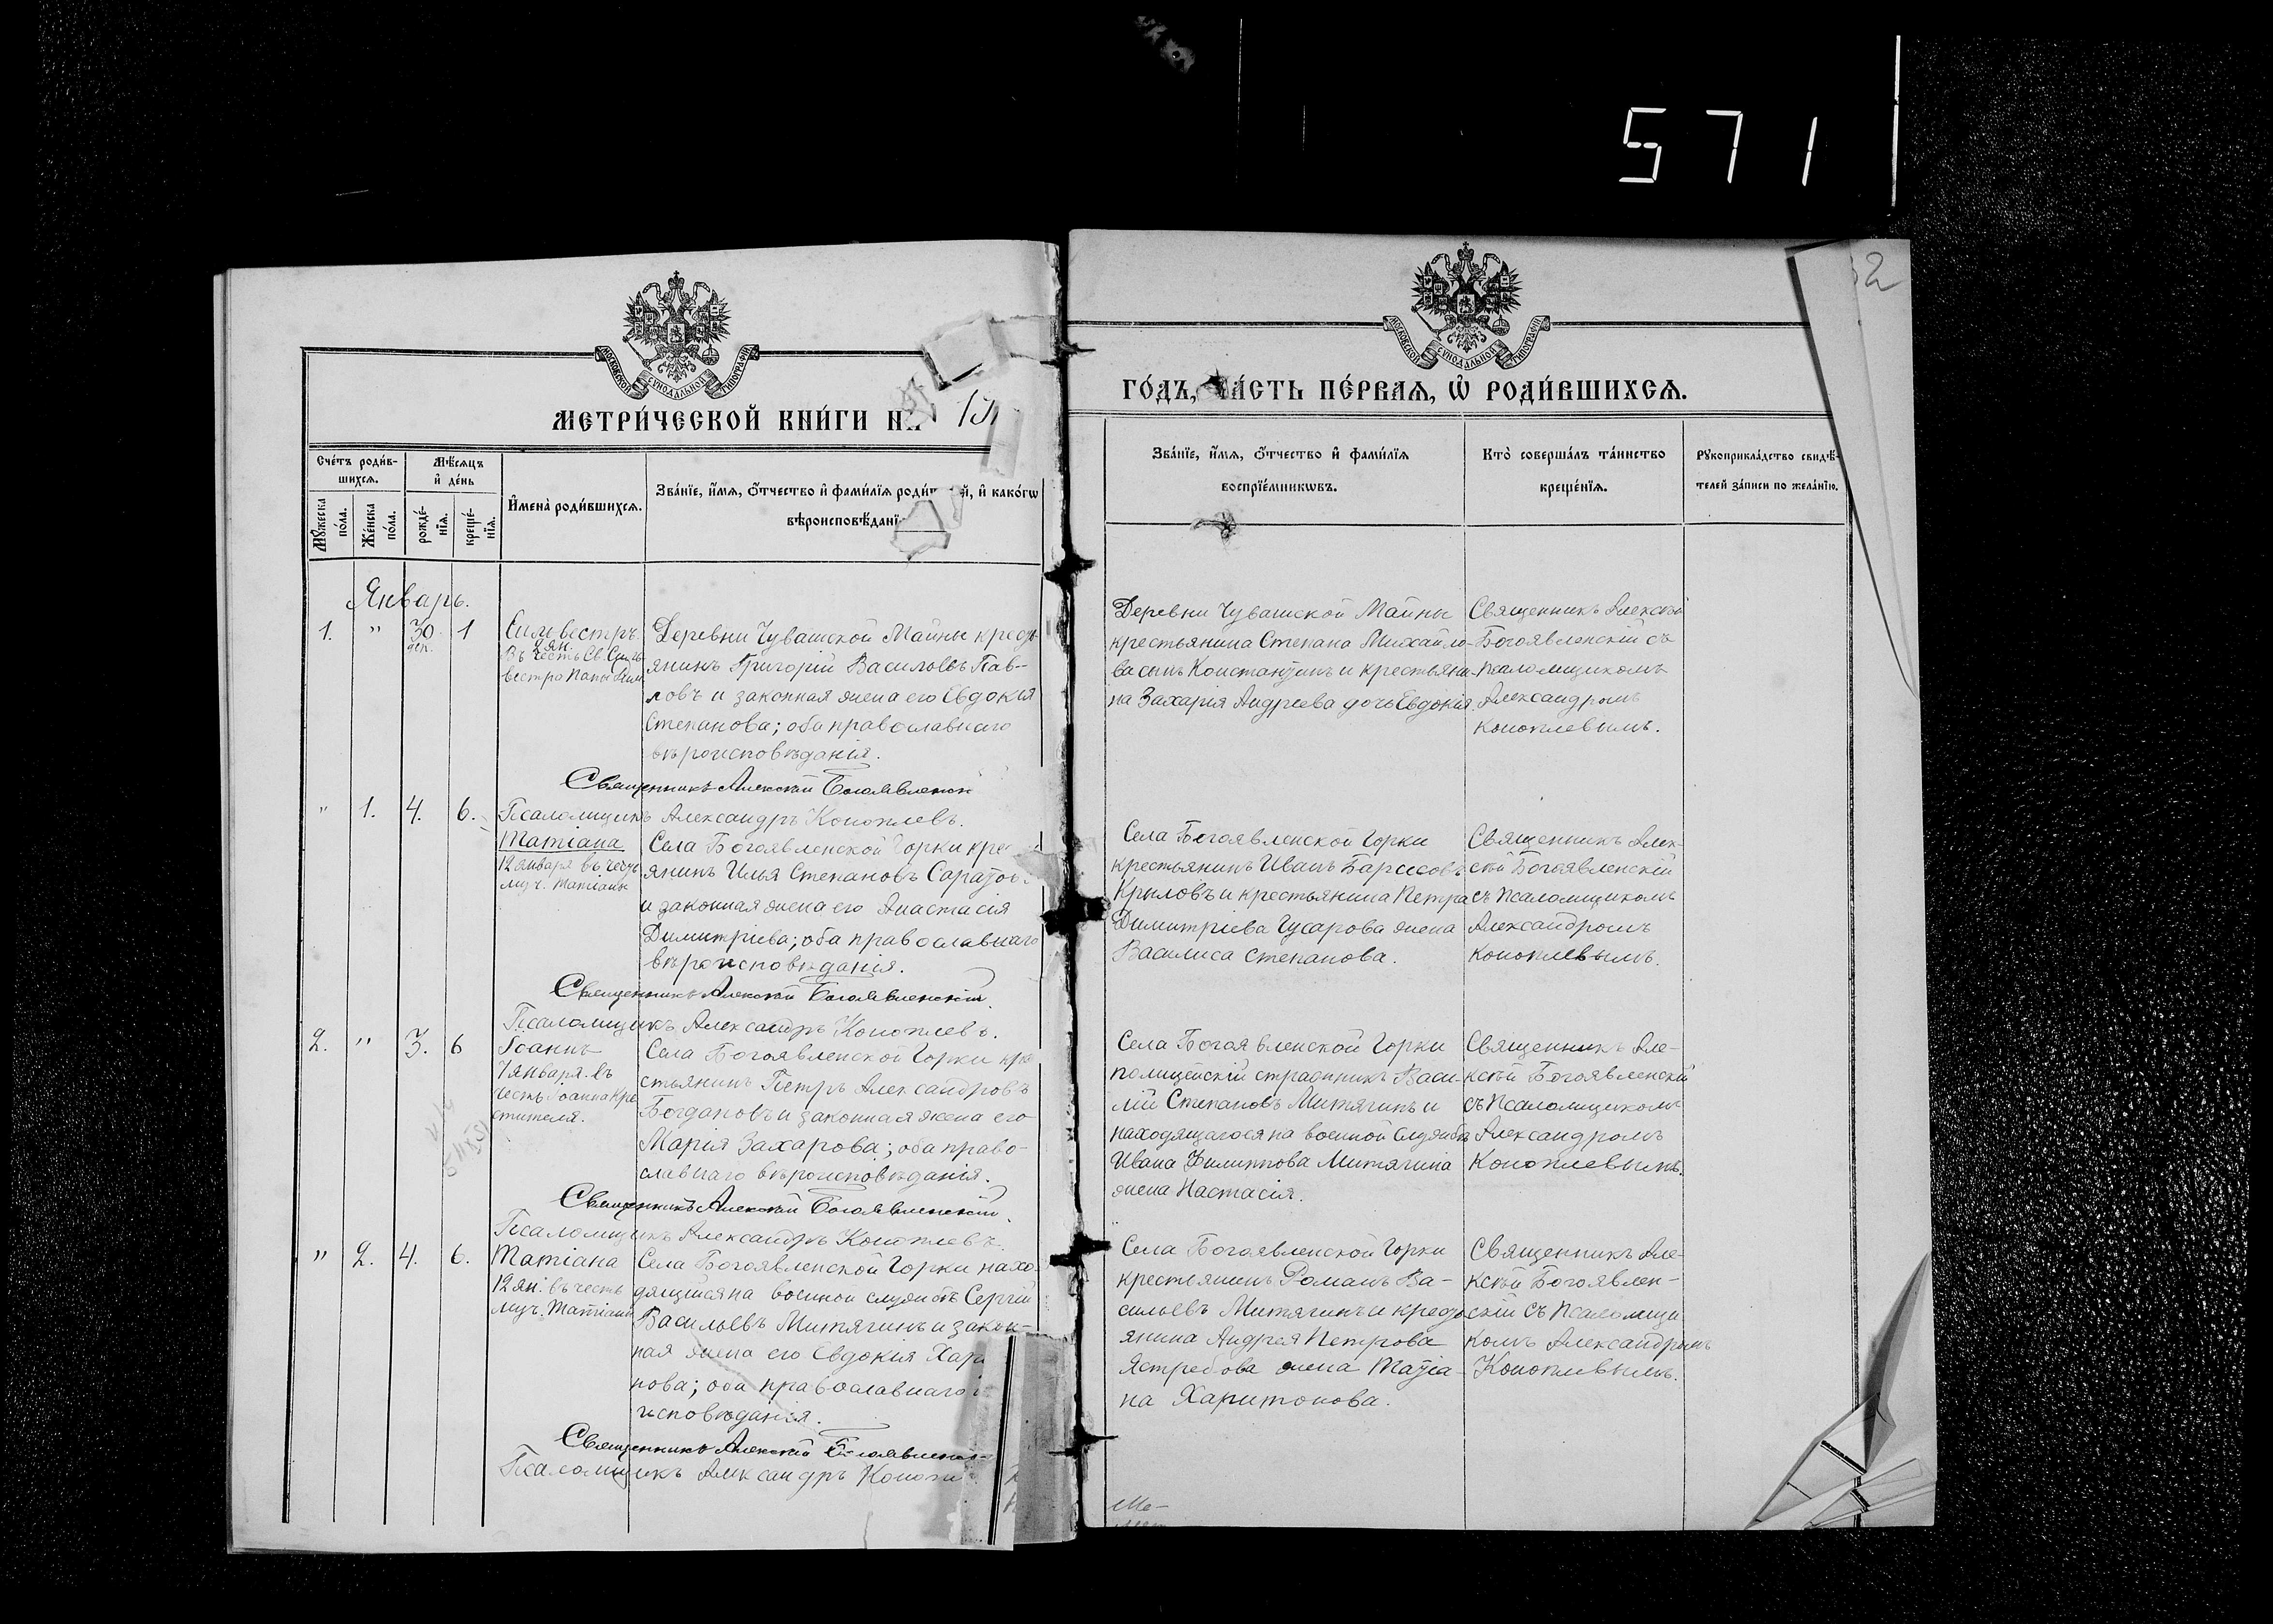 571
32
МОСКОВСКОЙ СУНОДАЛЬНОЙ ТИПОГРАФІИ
МЕТРИ́ЧЕСКОЙ КНИ́ГИ НА 19
Сче́тъ роди́в-
шихсѧ.
Мѣ́сѧцъ
и҆ де́нь
Мꙋ́жеска
по́ла.
Же́нска
по́ла.
рожде́-
нїѧ.
креще́-
нїѧ.
И҆мена̀ роди́вшихсѧ.
Зва́нїе, и҆́мѧ, ѻ҆́тчество и҆ фами́лїѧ роди́телей, и҆ како́гѡ
вѣроисповѣ́данїѧ
Январь.
1. " 30 1
дек.
Сильвестръ.
2 ян.
Въ честь Св. Силь-
вестра Папы Рим
Деревни Чувашской Майны кресть
янинъ Григорій Васильевъ Пав-
ловъ и законная жена его Евдокія
Степанова; оба православнаго
вѣроисповѣданія.
Священникъ Алексѣй Богоявленскій
Псаломщикъ Александръ Коноплевъ.
" 1. 4. 6.
Татіана
12 января въ честь
муч. Татіаны
Села Богоявленской Горки крес
янинъ Илья Степановъ
и законная жена его Анастасія
Димитріева; оба православнаго
вѣроисповѣданія.
Священникъ Алексѣй Богоявленскій.
Псаломщикъ Александръ Коноплевъ.
2. " 3. 6
Іоаннъ
7 января въ
честь Іоанна Кре
стителя.
Села Богоявленской Горки кре
стьянинъ Петръ Александровъ
Богдановъ и законная жена его
Марія Захарова; оба право-
славнаго вѣроисповѣданія.
Священникъ Алексѣй Богоявленскій.
Псаломщикъ Александръ Коноплевъ.
" 2. 4. 6.
Татіана
12 ян. въ честь
муч. Татіаны
Села Богоявленской Горки нахо-
дящійся на военной службѣ Сергій
Васильевъ Митягинъ и закон-
ная жена его Евдокія Хари
нова; оба православнаго
исповѣданія.
Священникъ Алексѣй Богоявленскій
Псаломщикъ Александръ Коноп
МОСКОВСКОЙ СУНОДАЛЬНОЙ ТИПОГРАФІИ
ГО́ДЪ, ЧА́СТЬ ПЕ́РВАѦ, Ѡ҆ РОДИ́ВШИХСѦ.
Зва́нїе, и҆́мѧ, ѻ҆́тчество и҆ фами́лїѧ
воспрїе́мникѡвъ.
Кто̀ соверша́лъ та́инство
креще́нїѧ.
Рꙋкоприкла́дство свидѣ́-
телей за́писи по жела́нїю.
Деревни Чувашской Майны
крестьянина Степана Михайло-
ва сынъ Константинъ и крестьяни-
на Захарія Андреева дочь Евдокія.
Священникъ Алексѣй
Богоявленскій съ
псаломщикомъ
Александромъ
Коноплевымъ.
Села Богоявленской Горки
крестьянинъ Иванъ Борисовъ
Крыловъ и крестьянина Петра
Димитріева Гусарова жена
Василиса Степанова.
Священникъ Алек-
сѣй Богоявленскій
съ псаломщикомъ
Александромъ
Коноплевымъ.
Села Богоявленской Горки
полицейскій стражникъ Васи-
лій Степановъ Митягинъ и
находящагося на военной службѣ
Ивана Филиппова Митягина
жена Настасія.
Священникъ Але-
ксѣй Богоявленскій
съ псаломщикомъ
Александромъ
Коноплевымъ.
Села Богоявленской Горки
крестьянинъ Романъ Ва-
сильевъ Митягинъ и кресть
янина Андрея Петрова
Ястребова жена Татіа-
на Харитонова.
Священникъ Але-
ксѣй Богоявлен-
скій съ псаломщи
комъ Александромъ
Коноплевымъ.